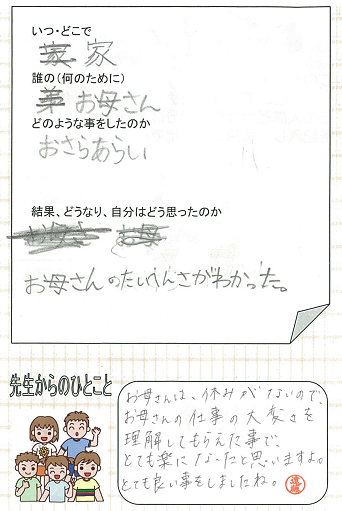 いつ・どこで
家
誰の(何のために)
お母さん
どのような事をしたのか
おさらあらい
結果、どうなり、自分はどう思ったのか
お母さんのたいへんさがわかった。
先生からのひとこと
お母さんは、休みがないので、
お母さんの仕事の大変さを
理解してもらえた事で、
とても楽になったと思いますよ。
とても良い事をしましたね。